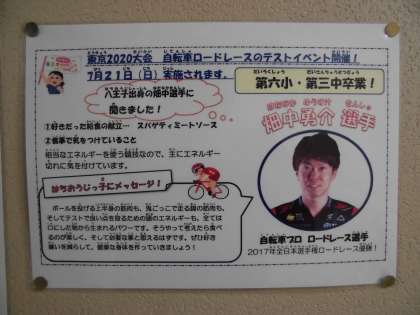 東京2020大会 自転車ロードレースのテストイベント開催！
7月21日（日）実施されます。
八王子出身の畑中選手に
聞きました！
①好きだった給食の献立… スパゲティミートソース
②食事で気をつけていること
相当なエネルギーを使う競技なので、主にエネルギー
切れに気を付けています。
はちおうじっ子にメッセージ！
ボールを投げる上半身の筋肉も、鬼ごっこで走る脚の筋肉も、
そしてテストで良い点を取るための頭のエネルギーも、全ては
口にした物から生まれるパワーです。そうやって考えたら食べ
るのが楽しく、そして必要な事と思えるはずです。ぜひ好き
嫌いを減らして、健康な身体を作っていきましょう！
第六小・第三中卒業！
畑中勇介 選手
自転車プロ ロードレース選手
2017年全日本選手権ロードレース優勝！